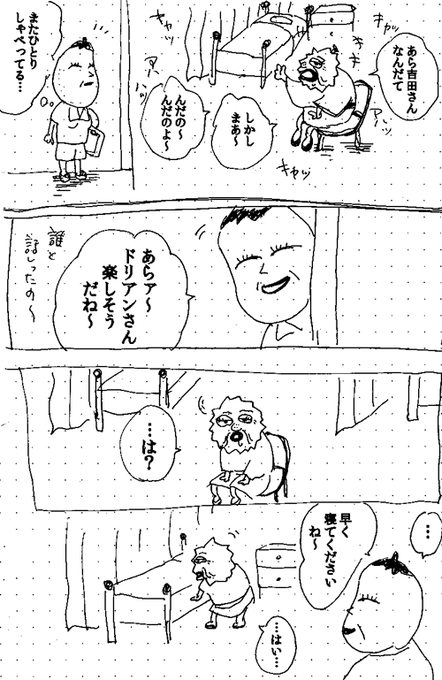 あら吉田さん
なんだて
キャッ
キャキャ
アハッ
キャッ
しかし
まあ〜
んだの〜
んだのよ〜
キャッ
アハハッ
またひとり
しゃべってる…
あらァ〜
ドリアンさん
楽しそう
だね〜
誰と
話しったの〜
…は？
…
早く
寝てください
ね〜
…はい…